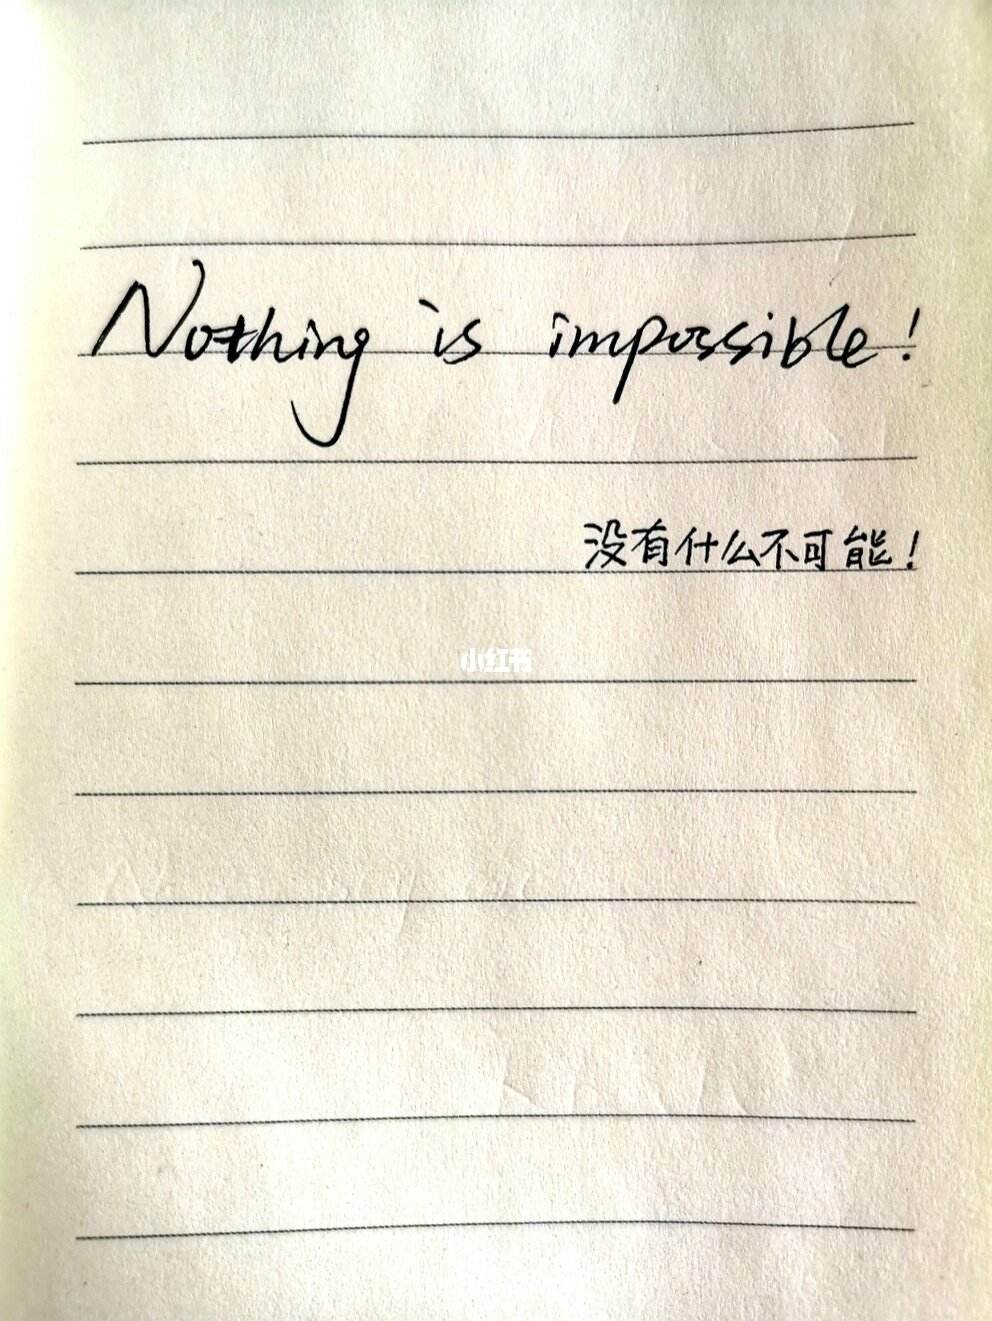 Nothing is impossible!
没有什么不可能！
小红书